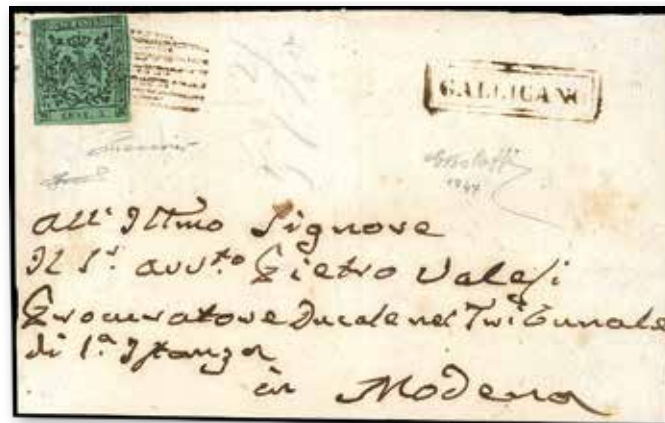 CENT. 5
GALLICANO
1947
All'Illmo Signore
Il Sr. avvto Pietro Valesi
Procuratore Ducale nel Tribunale
di 1a Istanza
in Modena